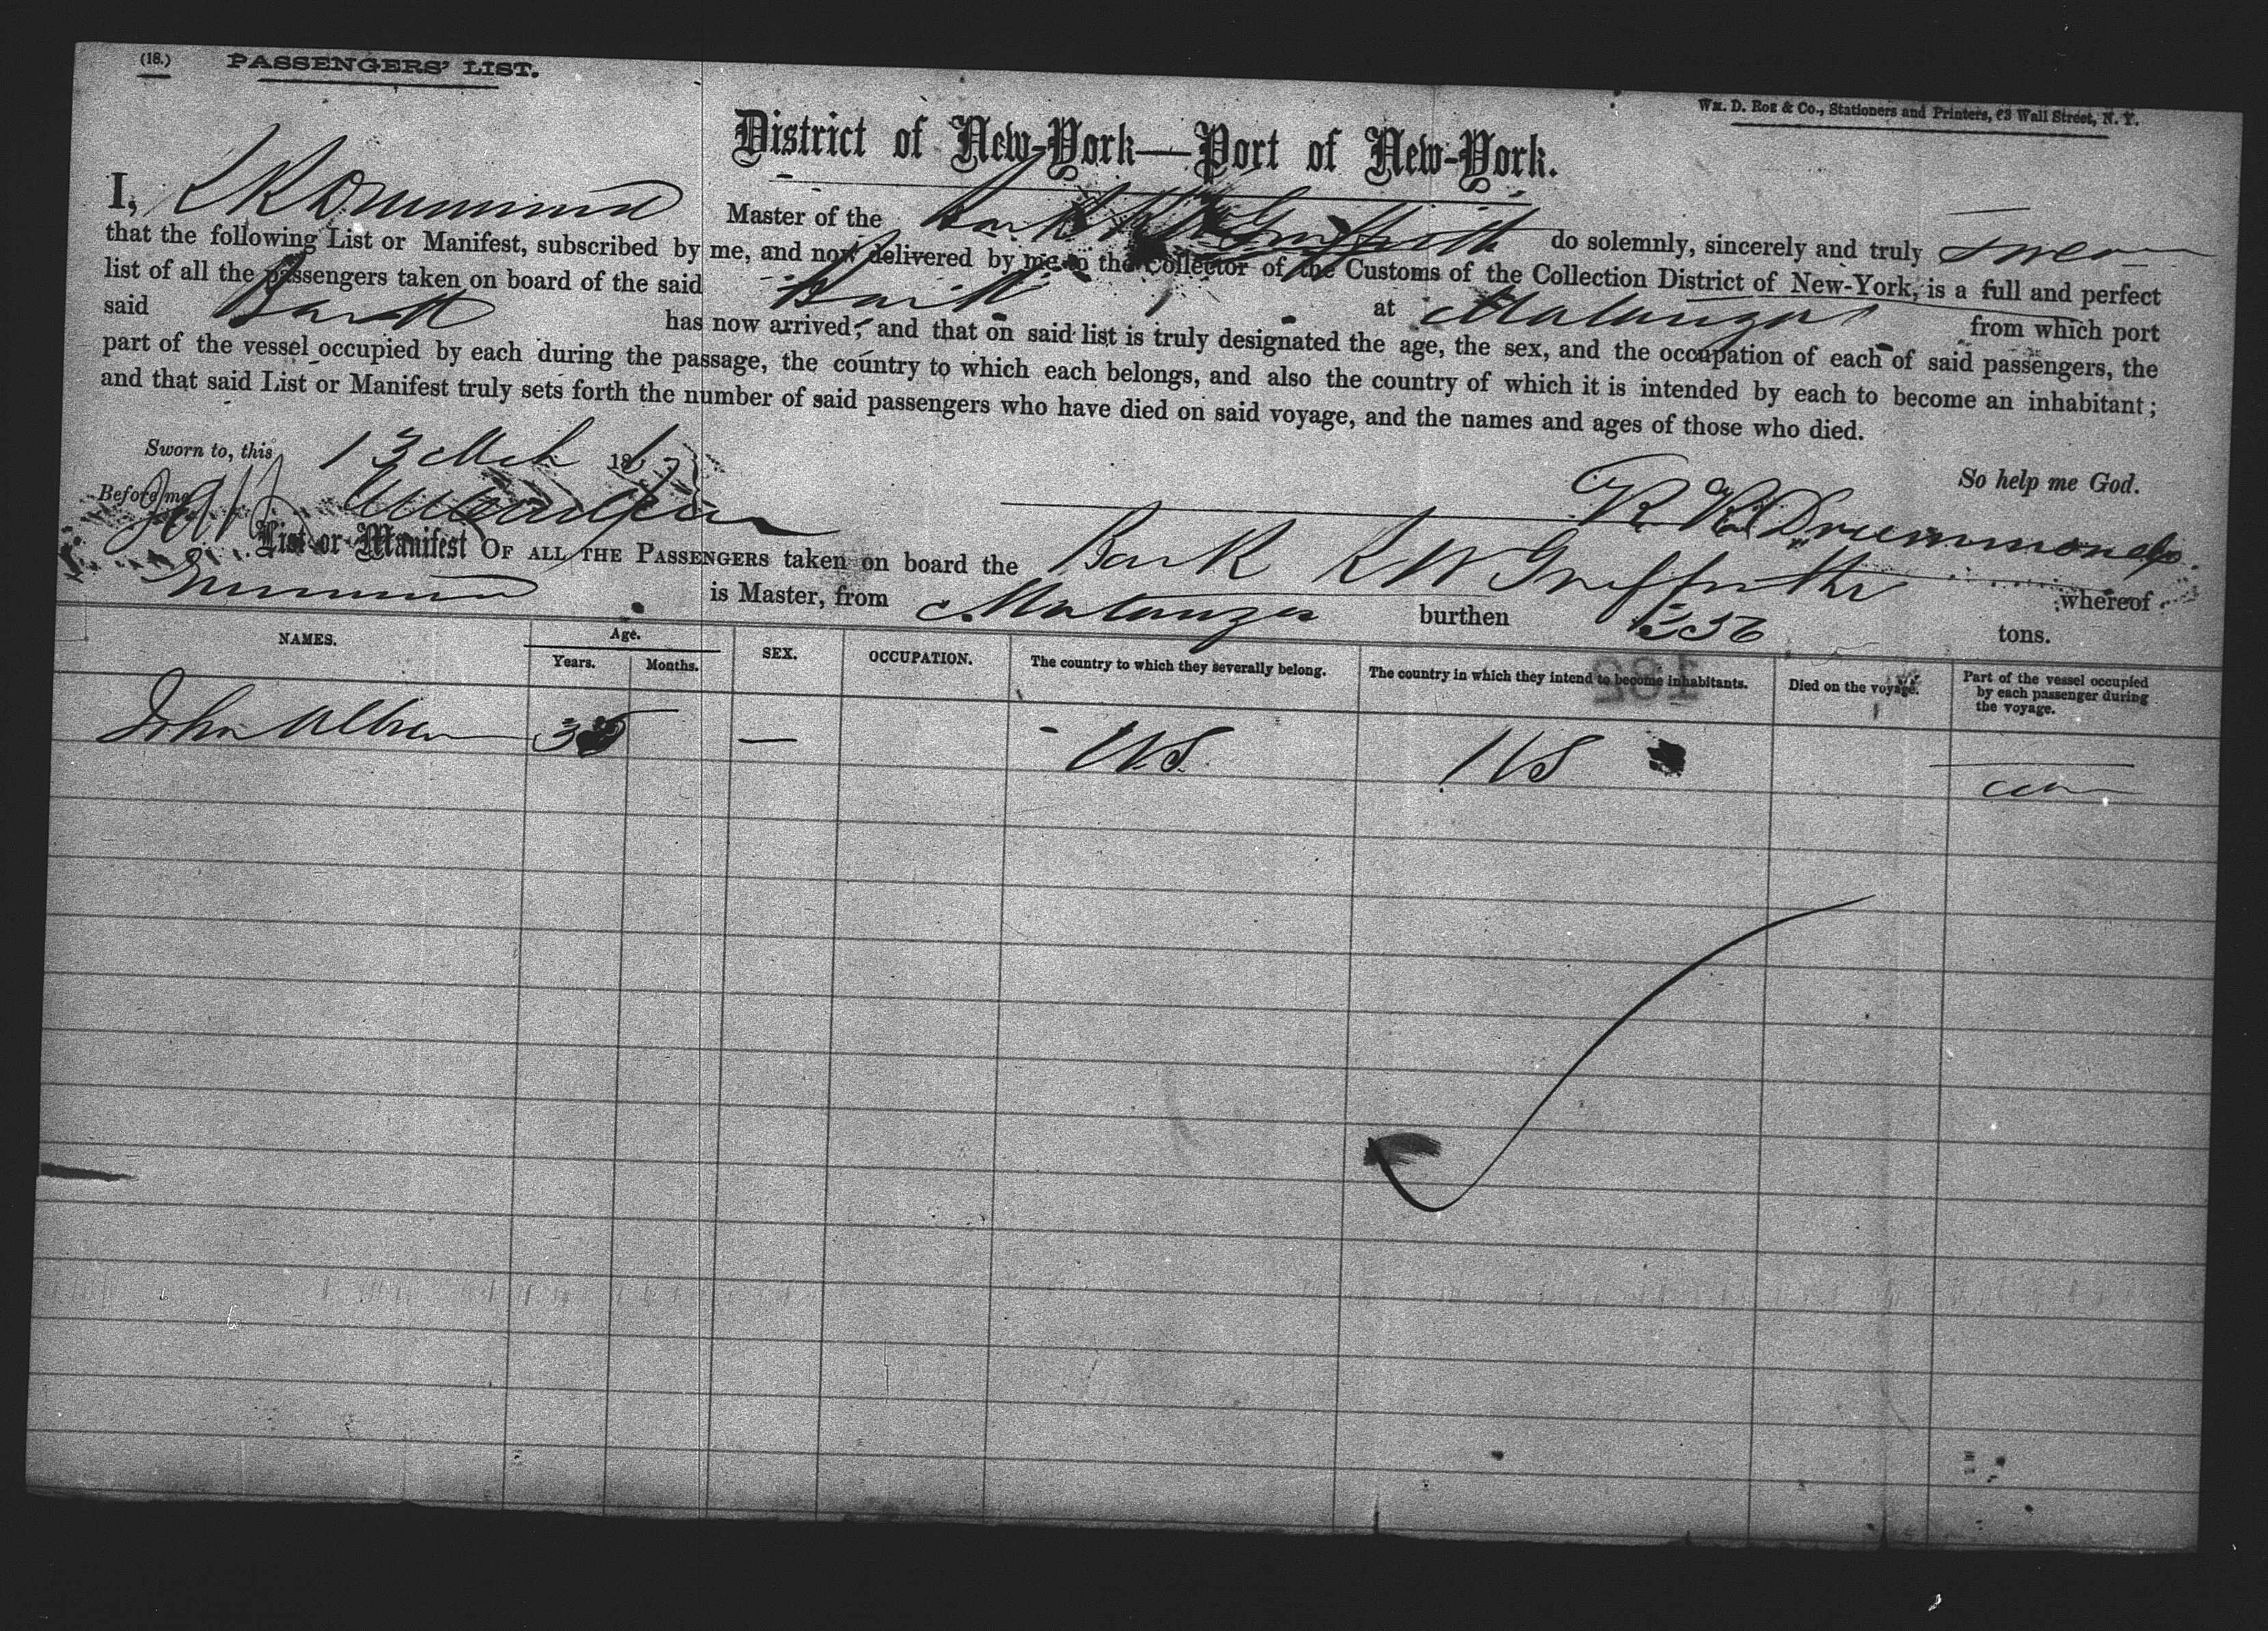 (18.) PASSENGERS' LIST.
Wm. D. Roe & Co., Stationers and Printers, 63 Wall Street, N. Y.
District of New-York—Port of New-York.
I, Drummond Master of the Bark R W Griffith do solemnly, sincerely and truly swear
that the following List or Manifest, subscribed by me, and now delivered by me to the Collector of the Customs of the Collection District of New-York, is a full and perfect
list of all the passengers taken on board of the said Bark at Matanzas from which port
said Bark has now arrived; and that on said list is truly designated the age, the sex, and the occupation of each of said passengers, the
part of the vessel occupied by each during the passage, the country to which each belongs, and also the country of which it is intended by each to become an inhabitant;
and that said List or Manifest truly sets forth the number of said passengers who have died on said voyage, and the names and ages of those who died.
Sworn to, this 13 Mch 186
So help me God.
Before me
R. R. Drummond
List or Manifest OF ALL THE PASSENGERS taken on board the Bark R W Griffiths whereof
Drummond is Master, from Matanzas burthen tons.
NAMES. Age. Years. Months. SEX. OCCUPATION. The country to which they severally belong. The country in which they intend to become inhabitants. Died on the voyage. Part of the vessel occupied by each passenger during the voyage.
182
John 35 — U.S. U S